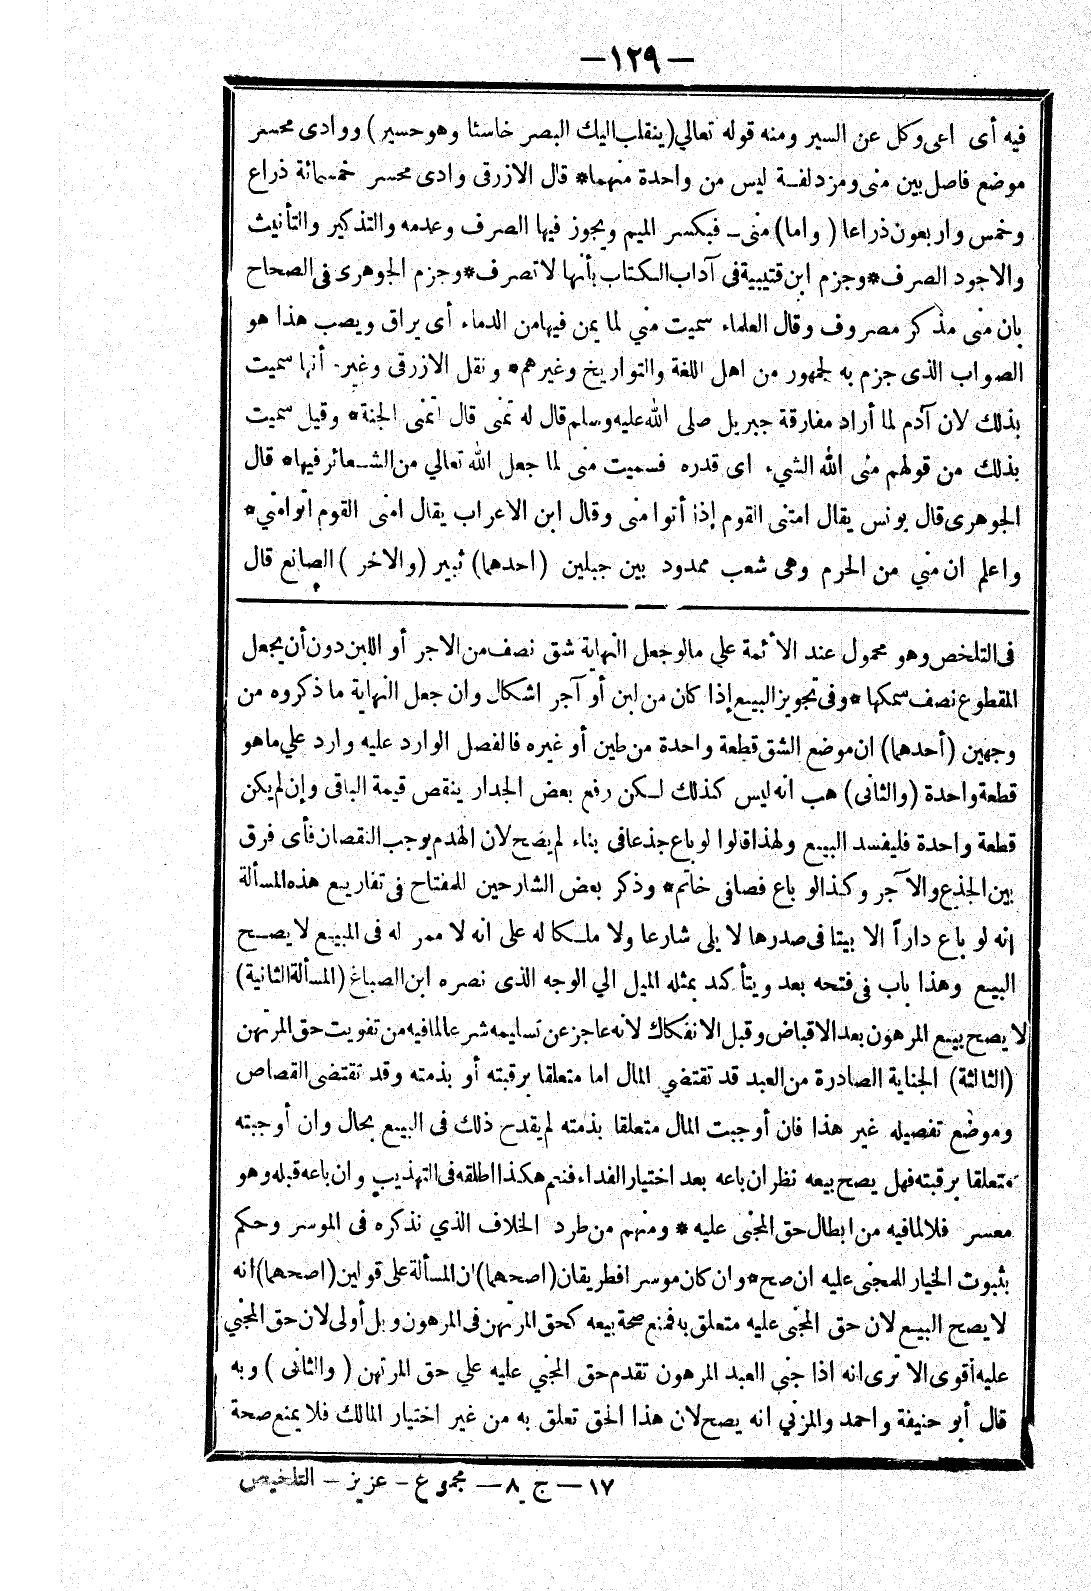 —١٢٩—
فيه أى اعى وكل عن السير ومنه قوله تعالي (ينقلب اليك البصر خاسئا وهو حسير) ووادى محسر
موضع فاصل بين منى ومزدلفة ليس من واحدة منهما* قال الازرقى وادى محسر خمسمائة ذراع
وخمس واربعون ذراعا (واما) منى ــ فبكسر الميم ويجوز فيها الصرف وعدمه والتذكير والتأنيث
والاجود الصرف* وجزم ابن قتيبية فى آداب الكتاب بأنها لا تصرف* وجزم الجوهرى فى الصحاح
بان منى مذكر مصروف وقال العلماء سميت مني لما يمن فيها من الدماء أى يراق ويصب هذا هو
الصواب الذى جزم به لجمهور من اهل اللغة والتواريخ وغيرهم* ونقل الازرقى وغيره أنها سميت
بذلك لان آدم لما أراد مفارقة جبريل صلى الله عليه وسلم قال له تمنى قال اتمنى الجنة* وقيل سميت
بذلك من قولهم منى الله الشيء اى قدره فسميت منى لما جعل الله تعالي من الشعائر فيها* قال
الجوهرى قال يونس يقال امتنى القوم إذا أتوا منى وقال ابن الاعراب يقال امنى القوم اتوا مني*
واعلم ان مني من الحرم وهى شعب ممدود بين جبلين (احدهما) ثبير (والاخر) الصانع قال
فى التلخص وهو محمول عند الأئمة علي مالو جعل النهاية شق نصف من الاجر أو اللبن دون أن يجعل
المقطوع نصف سمكها* وفى تجويز البيع إذا كان من لبن أو آجر اشكال وان جعل النهاية ما ذكروه من
وجهين (أحدهما) ان موضع الشق قطعة واحدة من طين أو غيره فالفصل الوارد عليه وارد علي ماهو
قطعة واحدة (والثانى) هب انه ليس كذلك لكن رفع بعض الجدار ينقص قيمة الباقى وإن لم يكن
قطعة واحدة فليفسد البيع ولهذا قالوا لو باع جذعا فى بناء لم يصح لان الهدم يوجب النقصان فأى فرق
بين الجذع والآجر وكذا لو باع فصا فى خاتم* وذكر بعض الشارحين للمفتاح فى تفاريع هذه المسألة
انه لو باع داراً الا بيتا فى صدرها لا يلى شارعا ولا ملكا له على انه لا ممر له فى المبيع لا يصح
البيع وهذا باب فى فتحه بعد ويتأكد بمثله الميل الي الوجه الذى نصره ابن الصباغ (المسألة الثانية)
لا يصح بيع المرهون بعد الاقباض وقبل الانفكاك لانه عاجز عن تسليمه شرعا لما فيه من تفويت حق المرتهن
(الثالثة) الجناية الصادرة من العبد قد تقتضي المال اما متعلقا برقبته أو بذمته وقد تقتضى القصاص
وموضع تفصيله غير هذا فان أوجبت المال متعلقا بذمته لم يقدح ذلك فى البيع بحال وان أوجبته
متعلقا برقبته فهل يصح بيعه نظر ان باعه بعد اختيار الفداء فنعم هكذا اطلقه فى التهذيب وان باعه قبله وهو
معسر فلا لما فيه من ابطال حق المجنى عليه* ومنهم من طرد الخلاف الذي نذكره فى الموسر وحكم
بثبوت الخيار للمجنى عليه ان صح* وان كان موسرا فطريقان (اصحهما) ان المسألة على قولين (اصحهما) انه
لا يصح البيع لان حق المجنى عليه متعلق به فمنع صحة بيعه كحق المرتهن فى المرهون وبل أولى لان حق المجني
عليه أقوى الا ترى انه اذا جنى العبد المرهون تقدم حق المجني عليه علي حق المرتهن (والثانى) وبه
قال أبو حنيفة واحمد والمزني انه يصح لان هذا الحق تعلق به من غير اختيار المالك فلا يمنع صحة
١٧ — ج ٨ — مجموع - عزيز - التلخيص